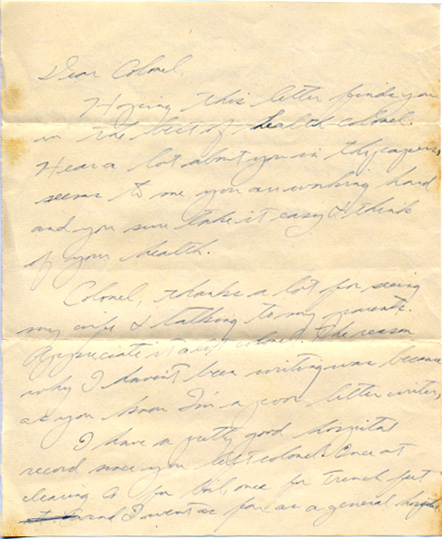 Dear Colonel,
Hoping this letter finds you
in the best of health colonel.
Hear a lot about you in the papers,
seems to me you are working hard
and you sure take it easy & think
of your health.
Colonel, thanks a lot for seeing
my wife & talking to my parents.
Appreciate it a lot colonel. The reason
why I haven't been writing was because
as you know I'm a poor letter writer,
I have a pretty good hospital
record since you left colonel. Once at
clearing Co for boil, once for trench feet
and I went as far as a general hospital